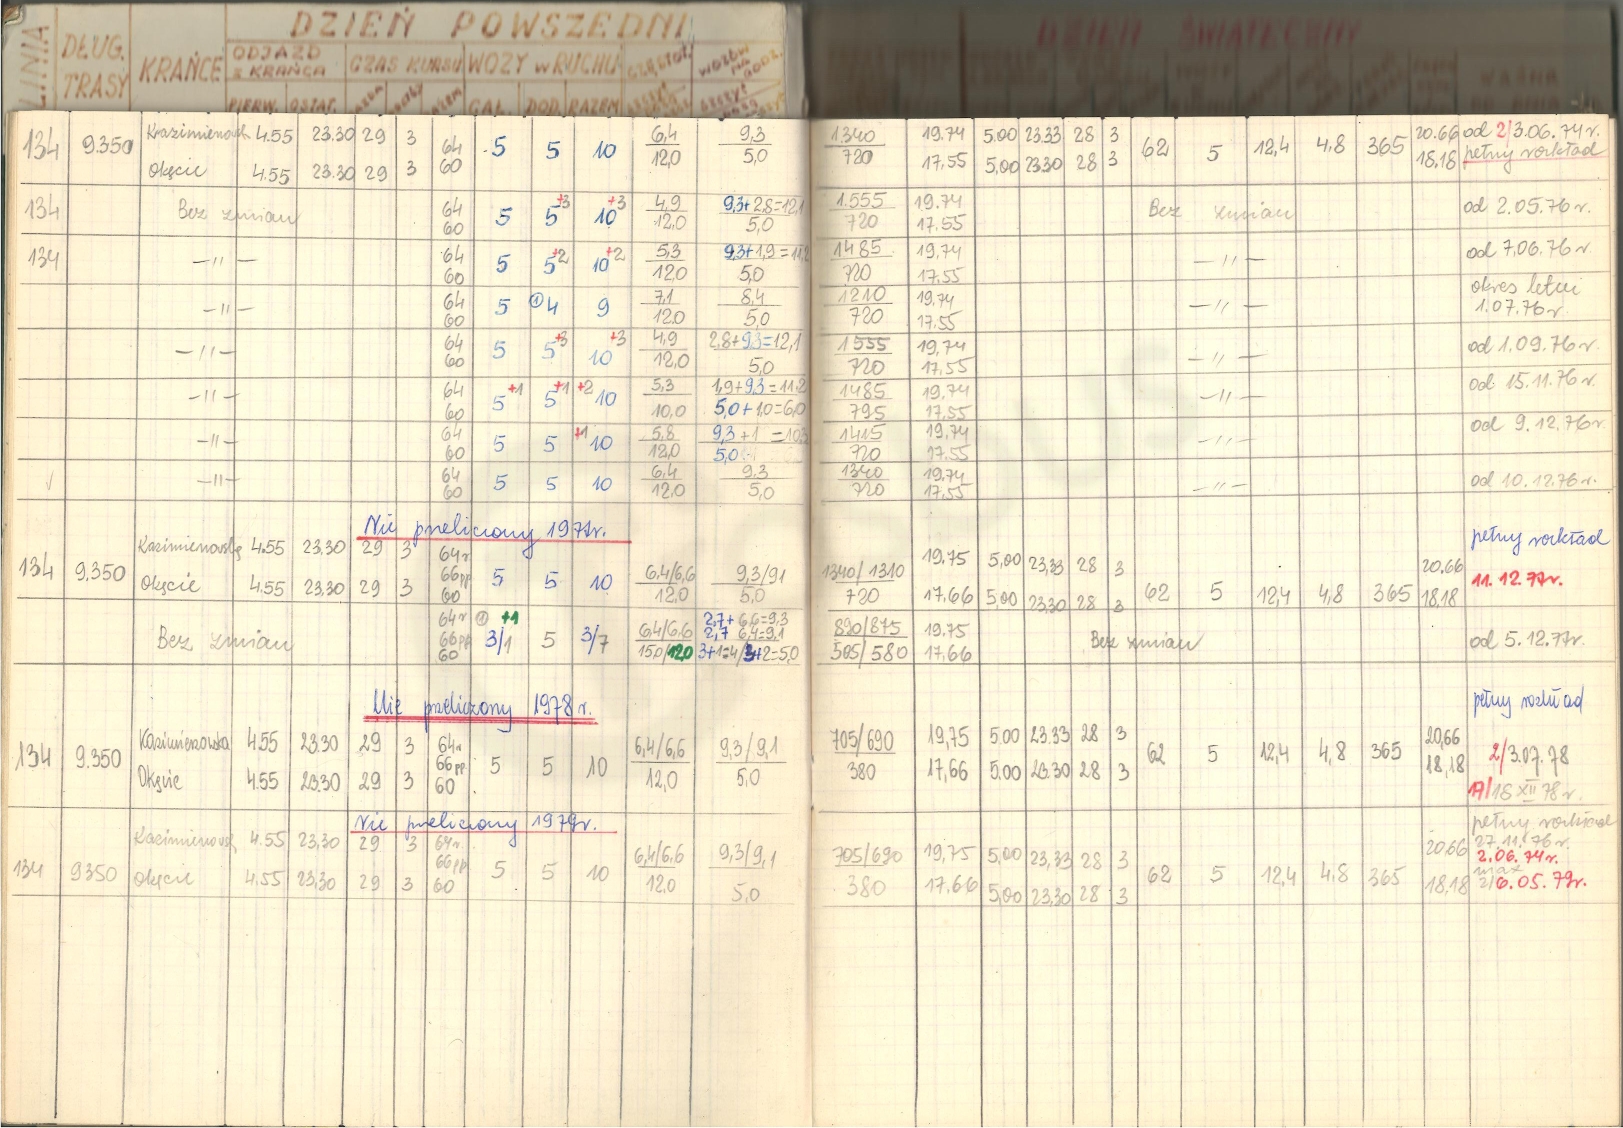 LINIA DŁUG. TRASY KRAŃCE DZIEŃ POWSZEDNI
ODJAZD z KRAŃCA CZAS KURSU WOZY w RUCHU
PIERW. OSTAT. CAŁ. DOD. RAZEM
DZIEŃ ŚWIĄTECZNY
WAŻNA
134 9.350 4.55 23.30 29 3 64 5 5 10 6,4 9,3 1340 19.74 5.00 23.33 28 3 62 5 12,4 4,8 365 20.66 od 2/3.06.74r.
Okęcie 4.55 23.30 29 3 60 12,0 5,0 720 17,55 5,00 23.30 28 3 18,18 pełny rozkład
134 Bez zmian 64 5 5+3 10+3 4,9 9,3+2,8=12,1 1.555 19.74 Bez zmian od 2.05.76r.
60 12,0 5,0 720 17.55
134 —"— 64 5 5+2 10+2 5,3 9,3+1,9=11,2 1485 19,74 —"— od 7.06.76r.
60 12,0 5,0 720 17,55
—"— 64 5 ①4 9 7,1 8,4 1210 19.74 —"— okres letni
60 12,0 5,0 720 17.55 1.07.76r.
—"— 64 5 5+3 10+3 4,9 2,8+9,3=12,1 1555 19,74 —"— od 1.09.76r.
60 12,0 5,0 720 17.55
—"— 64 5+1 5+1 +2 10 5,3 1,9+9,3=11,2 1485 19.74 —"— od 15.11.76r.
60 10,0 5,0+1,0=6,0 795 17.55
—"— 64 5 5 +1 10 5,8 9,3+1 1415 19.74 —"— od 9.12.76r.
60 12,0 5,0 720 17.55
—"— 64 5 5 10 6,4 9,3 1340 19.74 —"— od 10.12.76r.
60 12,0 5,0 720 17.55
Nie przeliczony
134 9,350 4.55 23.30 29 3 64r 5 5 10 6,4/6,6 9,3/9,1 1340/1310 19.75 5,00 23,33 28 3 62 5 12,4 4,8 365 20.66 pełny rozkład
66pp
Okęcie 4.55 23.30 29 3 60 12,0 5,0 720 17.66 5,00 23.30 28 3 18,18 11.12.77r.
Bez zmian 64r ① +1 3/1 5 3/7 6,4/6,6 2,7+6,6=9,3 890/875 19.75 Bez zmian od 5.12.77r.
66pp 2,7 6,4=9,1
60 15,0/12,0 3+1=4/3+2=5,0 505/580 17.66
Nie przeliczony 1978r.
134 9.350 Kazimierzowska 4.55 23.30 29 3 64r 5 5 10 6,4/6,6 9,3/9,1 705/690 19,75 5.00 23.33 28 3 62 5 12,4 4,8 365 20,66 pełny rozkład
66pp 2/3.07.78
Okęcie 4.55 23.30 29 3 60 12,0 5,0 380 17,66 5,00 23.30 28 3 18,18 17/18 XII 78r.
Nie przeliczony 1979r.
134 9350 4.55 23,30 29 3 64r. 5 5 10 6,4/6,6 9,3/9,1 705/690 19,75 5,00 23,33 28 3 62 5 12,4 4,8 365 20.66 pełny rozkład
66pp 27.11.76r.
2.06.74r.
Okęcie 4.55 23.30 29 3 60 12,0 5,0 380 17.66 5,00 23,30 28 3 18,18 6.05.79r.